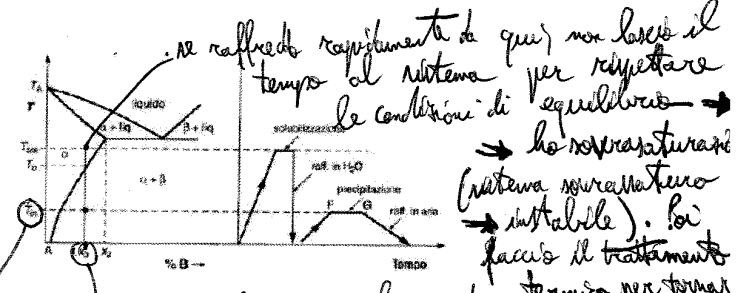 . se raffredo rapidamente da qui, non lascio il
tempo al sistema per rispettare
le condizioni di equilibrio →
→ ho soprasaturazi
(sistema sovrassaturo
→ instabile). Poi
faccio il trattamento
termico per tornar
T_A
T
liquido
α + liq
β + liq
α
α + β
solubilizzazione
raff. in H₂O
precipitazione
F G
raff. in aria
A
X₂
% B →
Tempo